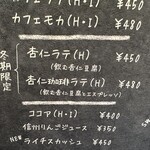 ¥450
カフェモカ(H・I) ¥480
冬期限定
杏仁ラテ(H) ¥450
(飲む杏仁豆腐)
杏仁珈琲ラテ(H) ¥480
(飲む杏仁豆腐とエスプレッソ)
ココア(H・I) ¥400
信州りんごジュース ¥350
NEW ライチスカッシュ ¥450